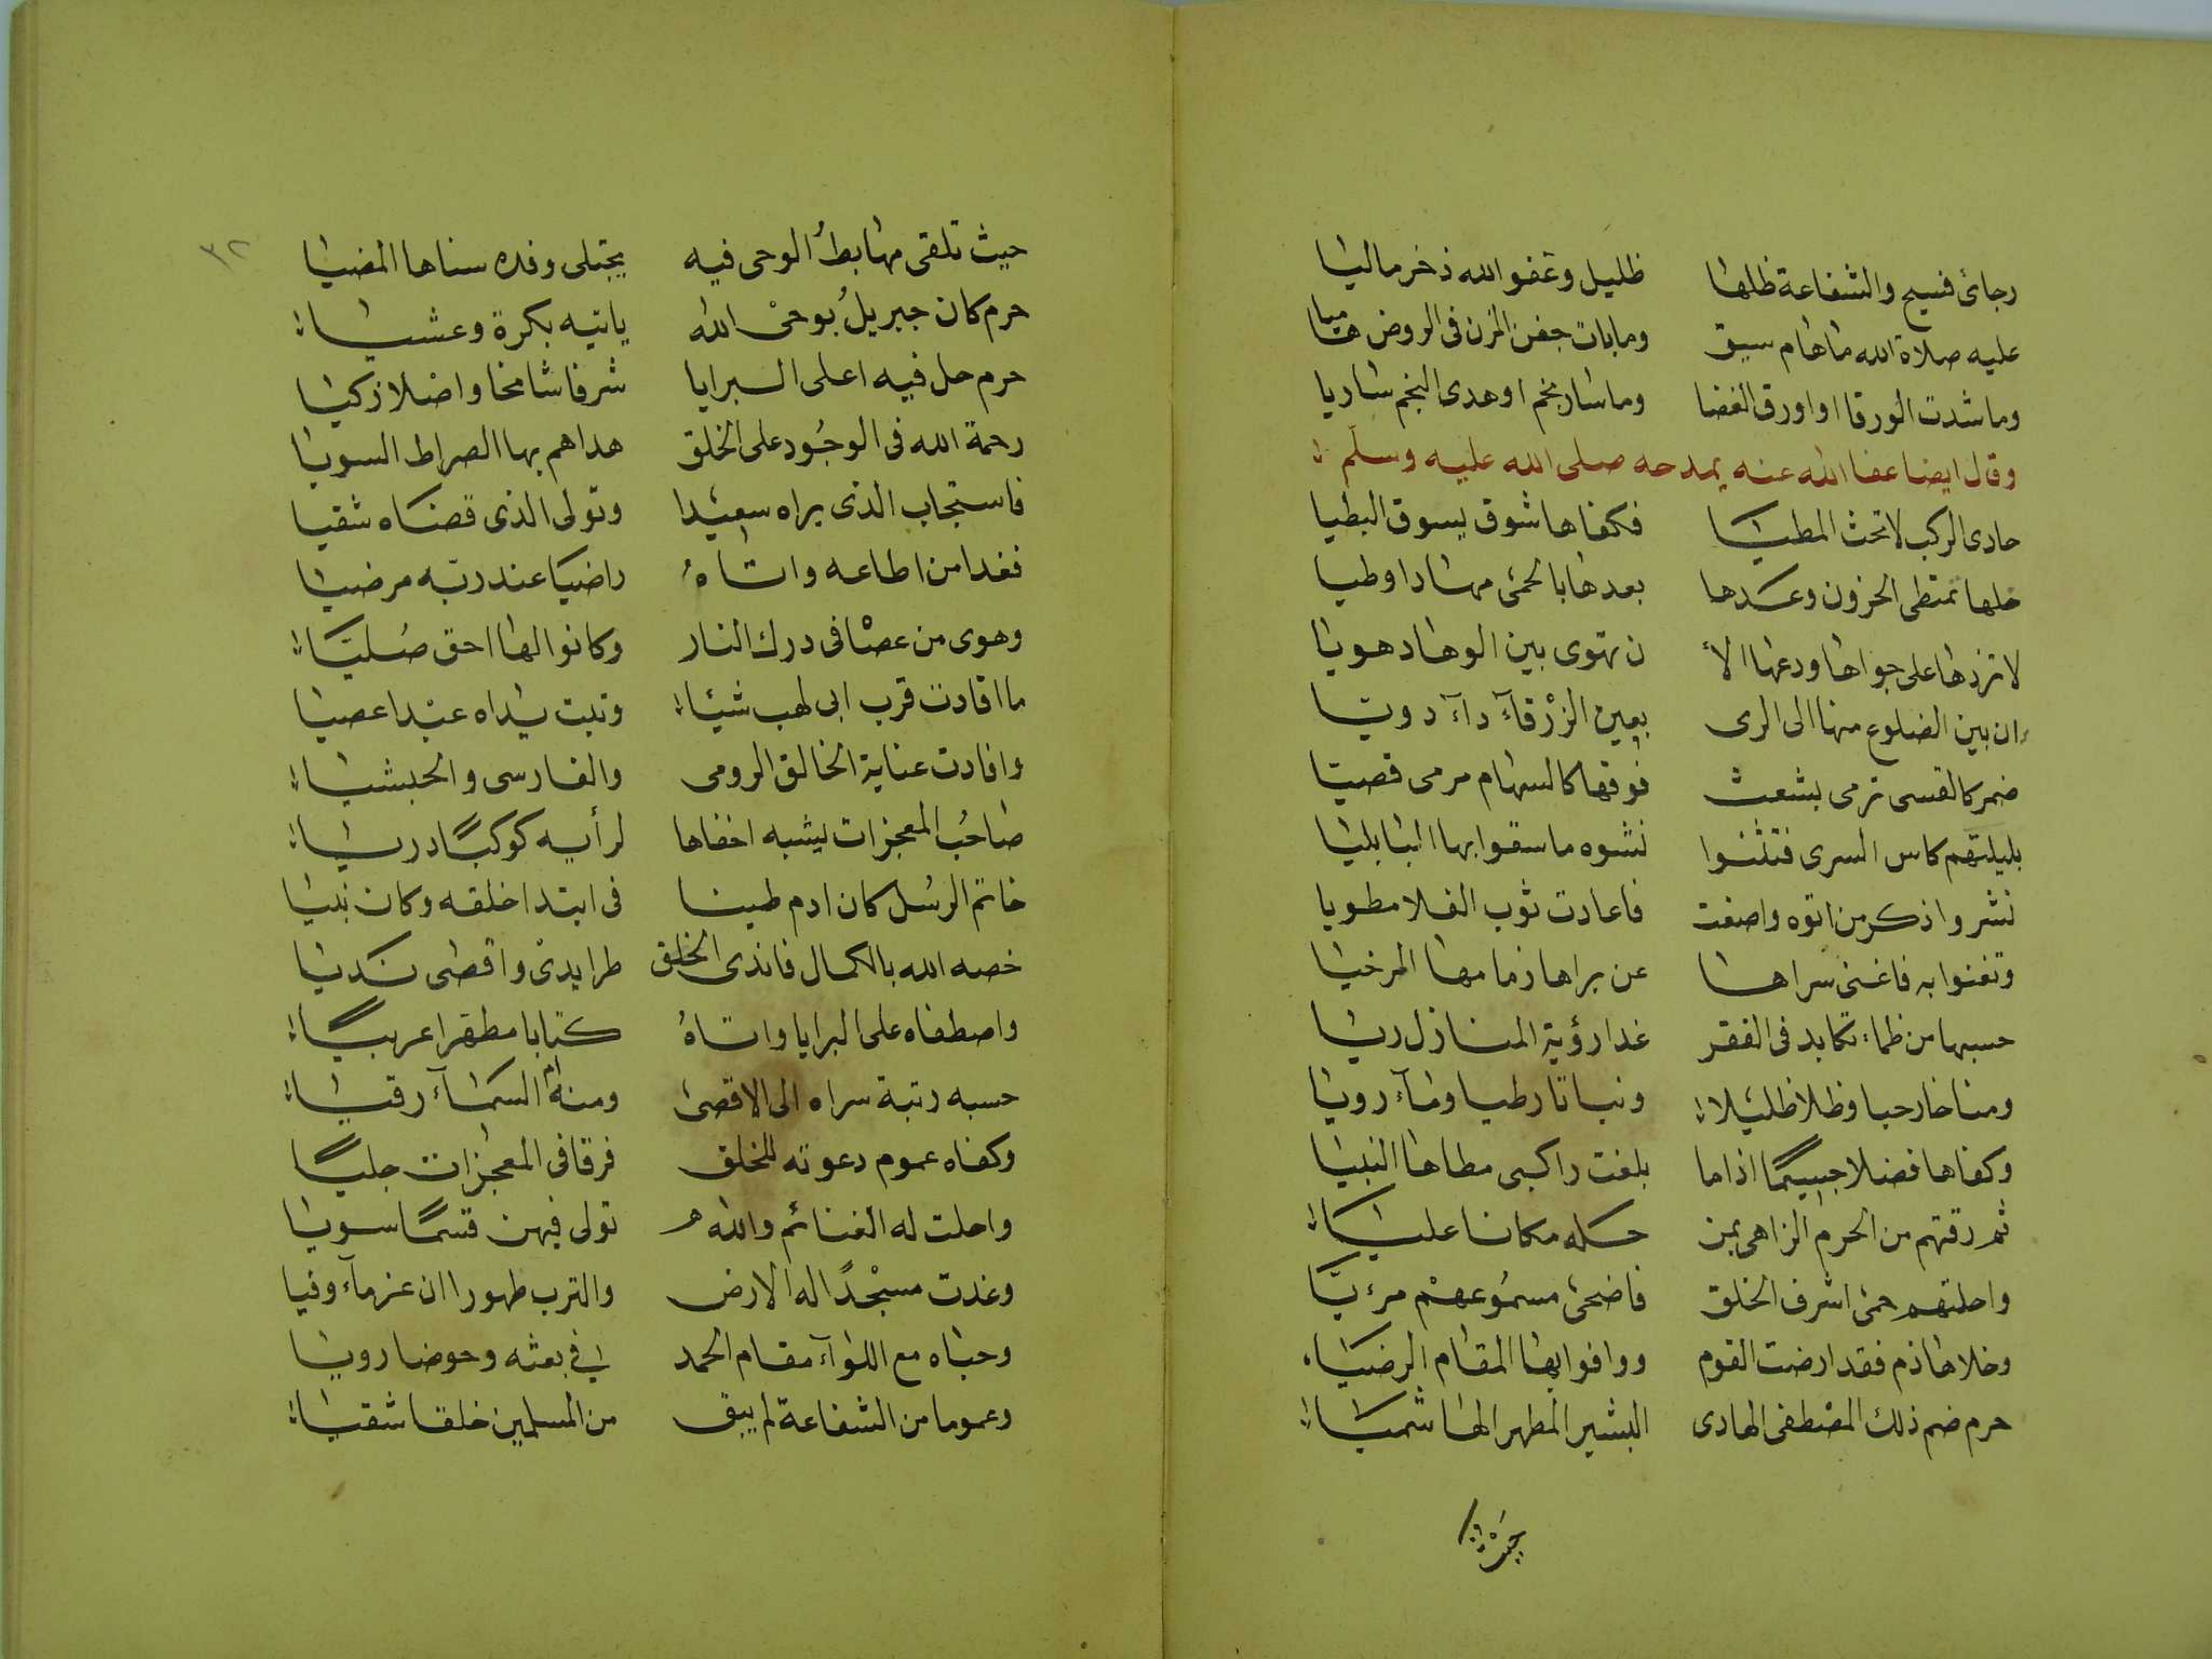 رجائ فسيح والشفاعة ظلها ظليل وعفو الله ذخر ماليا
عليه صلاة الله ماهام سيق ومابات جفن المزن فى الروض هاميا
وماشدت الورقا اواورق الغضا وماسار نجم اوهدى النجم ساريا
وقال ايضا عفا الله عنه يمدحه صلى الله عليه وسلم
حادى الركب لا تحث المطيا فكفاها شوق يسوق البطيا
خلها تمتطى الحزون وعدها بعدها بالحمى مهادا وطيا
لا تزدها على جواها ودعها الأ ن تهوى بين الوهاد هويا
ان بين الضلوع منها الى الرى بعين الزرقآء دآء دويا
ضمر كالقسى ترمى بشعث فوقها كالسهام مرمى قصيا
بليلتهم كاس السرى فتثنوا نشوه ماسقوا بها البابليا
نشروا ذكر من اتوه واصغت فاعادت ثوب الفلا مطويا
وتغنوا به فاغنى سراها عن براها زمامها المرخيا
حسبها من ظماء تكابد فى القفر غدا رؤية المنازل ريا
ومناخا رحبا وظلا ظليلا ونباتا رطيا ومآء رويا
وكفاها فضلا جسيما اذا ما بلغت راكبى مطاها النبيا
ثم رقتهم من الحرم الزاهى بمن حله مكانا عليا
واحلتهم حمى اشرف الخلق فاضحى مسموعهم مرءيا
وخلاها ذم فقد ارضت القوم ووافوا بها المقام الرضيا
حرم ضم ذلك المصطفى الهادى البشير المطهر الهاشميا
حيث
٣٢
حيث تلقى مهابط الوحى فيه يجتلى وفده سناها المضيا
حرم كان جبريل بوحى الله ياتيه بكرة وعشيا
حرم حل فيه اعلى البرايا شرفا شامخا واصلا زكيا
رحمة الله فى الوجود على الخلق هداهم بها الصراط السويا
فاستجاب الذى براه سعيدا وتولى الذى قضاه شقيا
فغدا من اطاعه واتاه راضيا عند ربه مرضيا
وهوى من عصا فى درك النار وكانوا لها احق صليا
ما افادت قرب ابى لهب شيئا وتبت يداه عبدا عصيا
وافادت عناية الخالق الرومى والفارسى والحبشيا
صاحب المعجزات يشبه اخفاها لرأيه كوكبا دريا
خاتم الرسل كان ادم طينا فى ابتدا خلقه وكان نبيا
خصه الله بالكمال فاندى الخلق طرا يدى واقصى نديا
واصطفاه على البرايا واتاه كتابا مطهرا عربيا
حسبه رتبة سراه الى الاقصى ومنه ام السمآء رقيا
وكفاه عموم دعوته للخلق فرقا فى المعجزات جليا
واحلت له الغنائم والله تولى فيهن قسما سويا
وغدت مسجدا له الارض والترب طهورا ان عز مآء وفيا
وحباه مع اللوآء مقام الحمد فى بعثه وحوضا رويا
وعموما من الشفاعة لم يبق من المسلمين خلقا شقيا